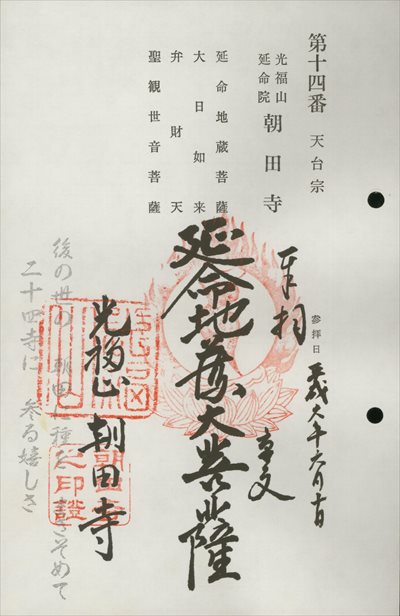 第十四番 天台宗
光福山
延命院
朝田寺
延命地蔵菩薩
大日如来
弁財天
聖観世音菩薩
奉拝
参拝日
延命地蔵大菩薩
光福山 朝田寺
後の世の 朝田 種を まきそめて
二十四寺に 参る嬉しさ